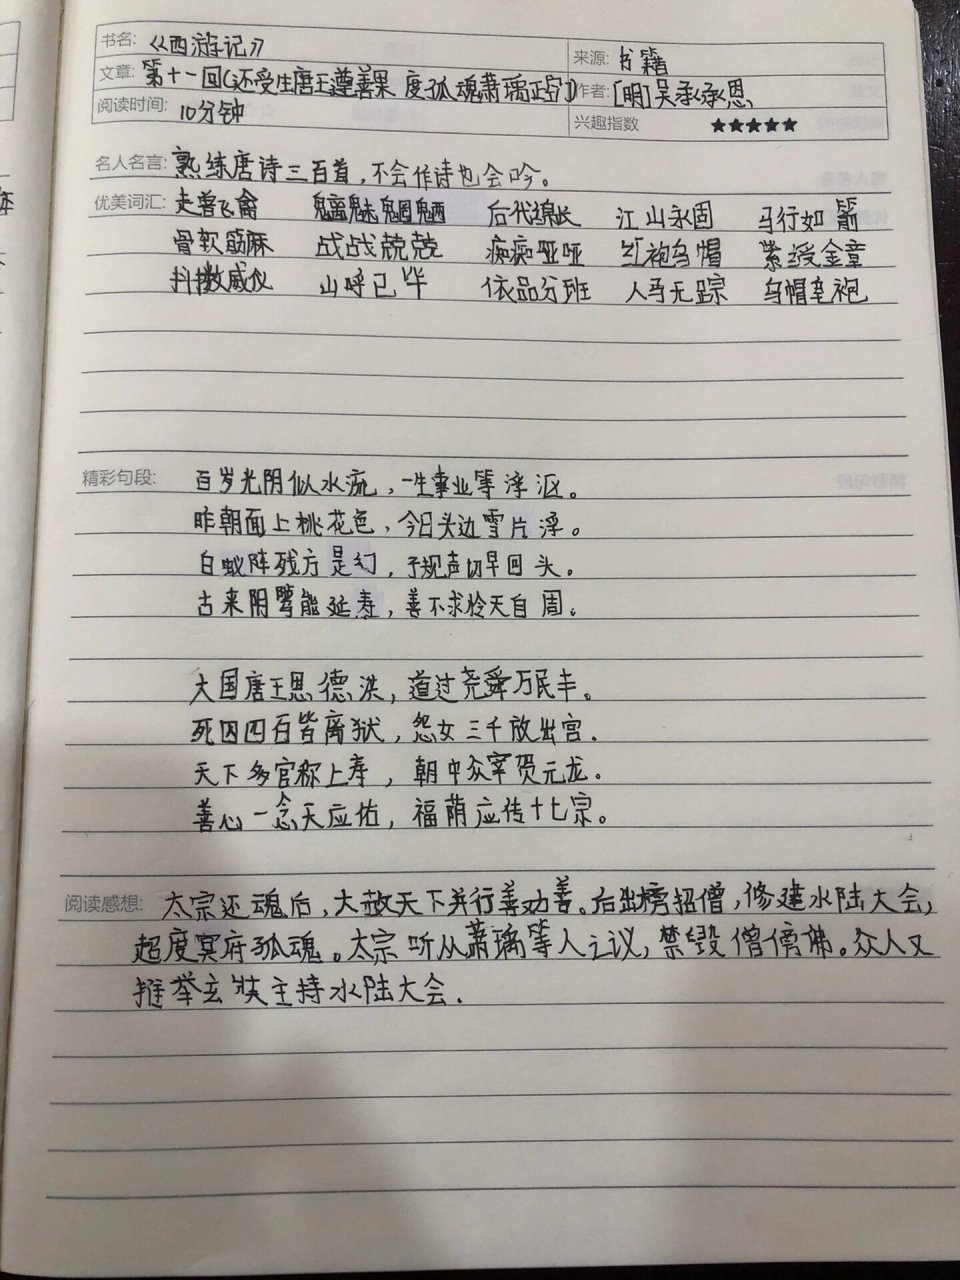 书名: 《西游记》
来源: 书籍
文章: 第十一回(还受生唐王遵善果 度孤魂萧瑀正空门)
作者: [明]吴承承恩
阅读时间: 10分钟
兴趣指数 ★★★★★
名人名言: 熟练唐诗三百首,不会作诗也会吟。
优美词汇: 走兽飞禽 魑魅魍魉 后代绵长 江山永固 马行如箭
骨软筋麻 战战兢兢 痴痴哑哑 红袍乌帽 紫绶金章
抖擞威仪 山呼已毕 依品分班 人马无踪 乌帽皂袍
精彩句段: 百岁光阴似水流,一生事业等浮沤。
昨朝面上桃花色,今日头边雪片浮。
白蚁阵残方是幻,子规声切早回头。
古来阴骘能延寿,善不求怜天自周。
大国唐王恩德洪,道过尧舜万民丰。
死囚四百皆离狱,怨女三千放出宫.
天下多官称上寿,朝中众宰贺元龙。
善心一念天应佑,福荫应传十七宗。
阅读感想: 太宗还魂后,大赦天下并行善劝善。后出榜招僧,修建水陆大会,
超度冥府孤魂。太宗听从萧瑀等人之议,禁毁僧傍佛。众人又
推举玄奘主持水陆大会.